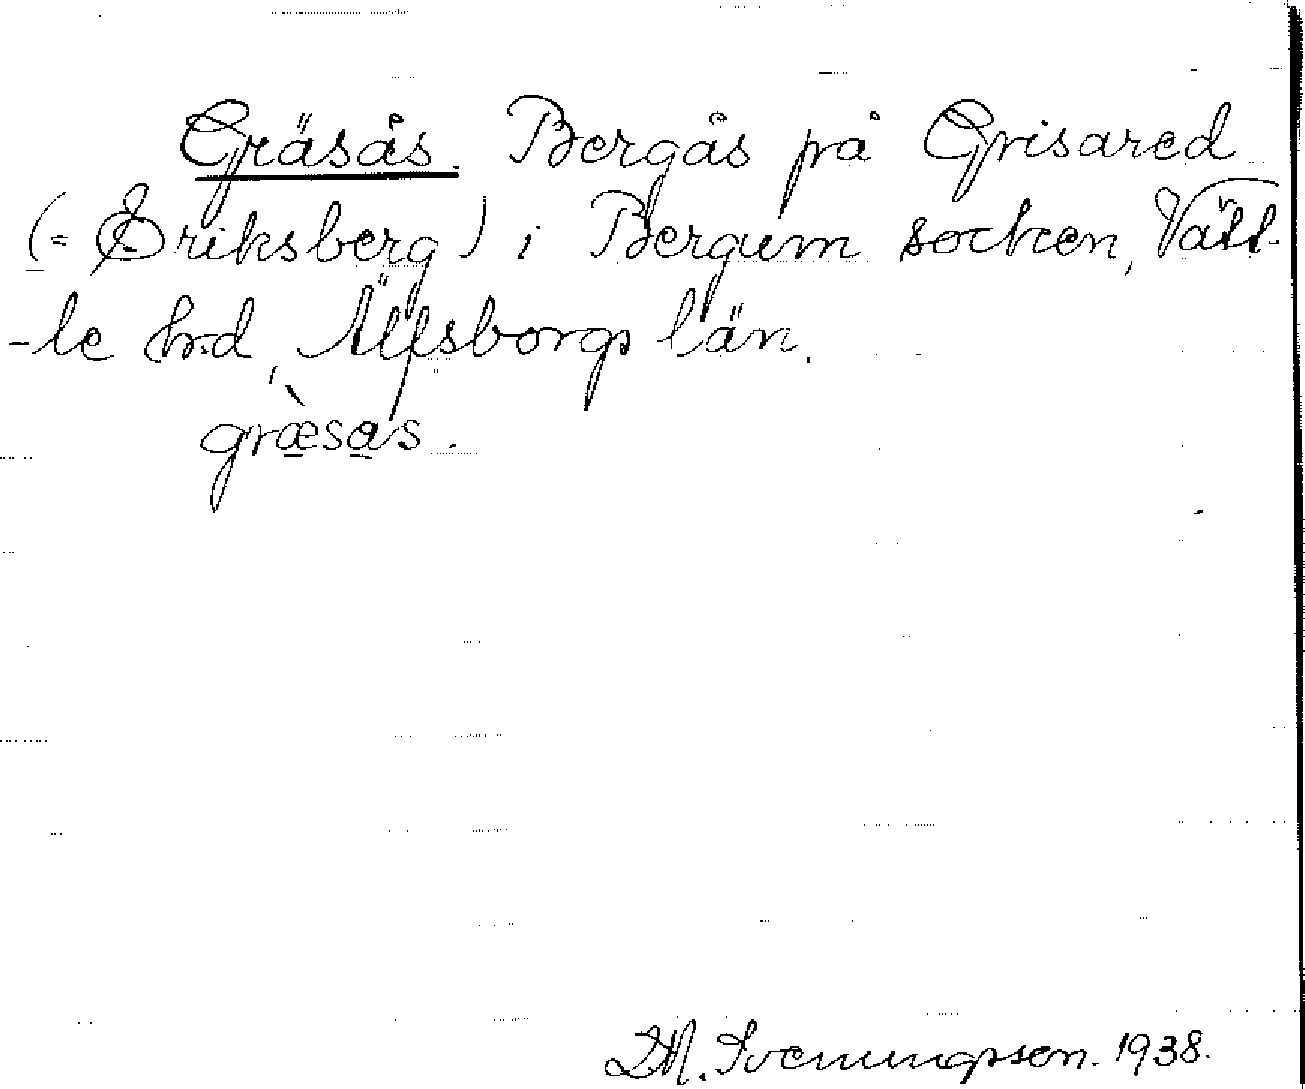 Gräsås. Bergås på Grisared
(= Eriksberg) i Bergum socken, Vätt-
-le hd, Älfsborgs län.
græ̀sas.
D.M. Svenningsson. 1938.